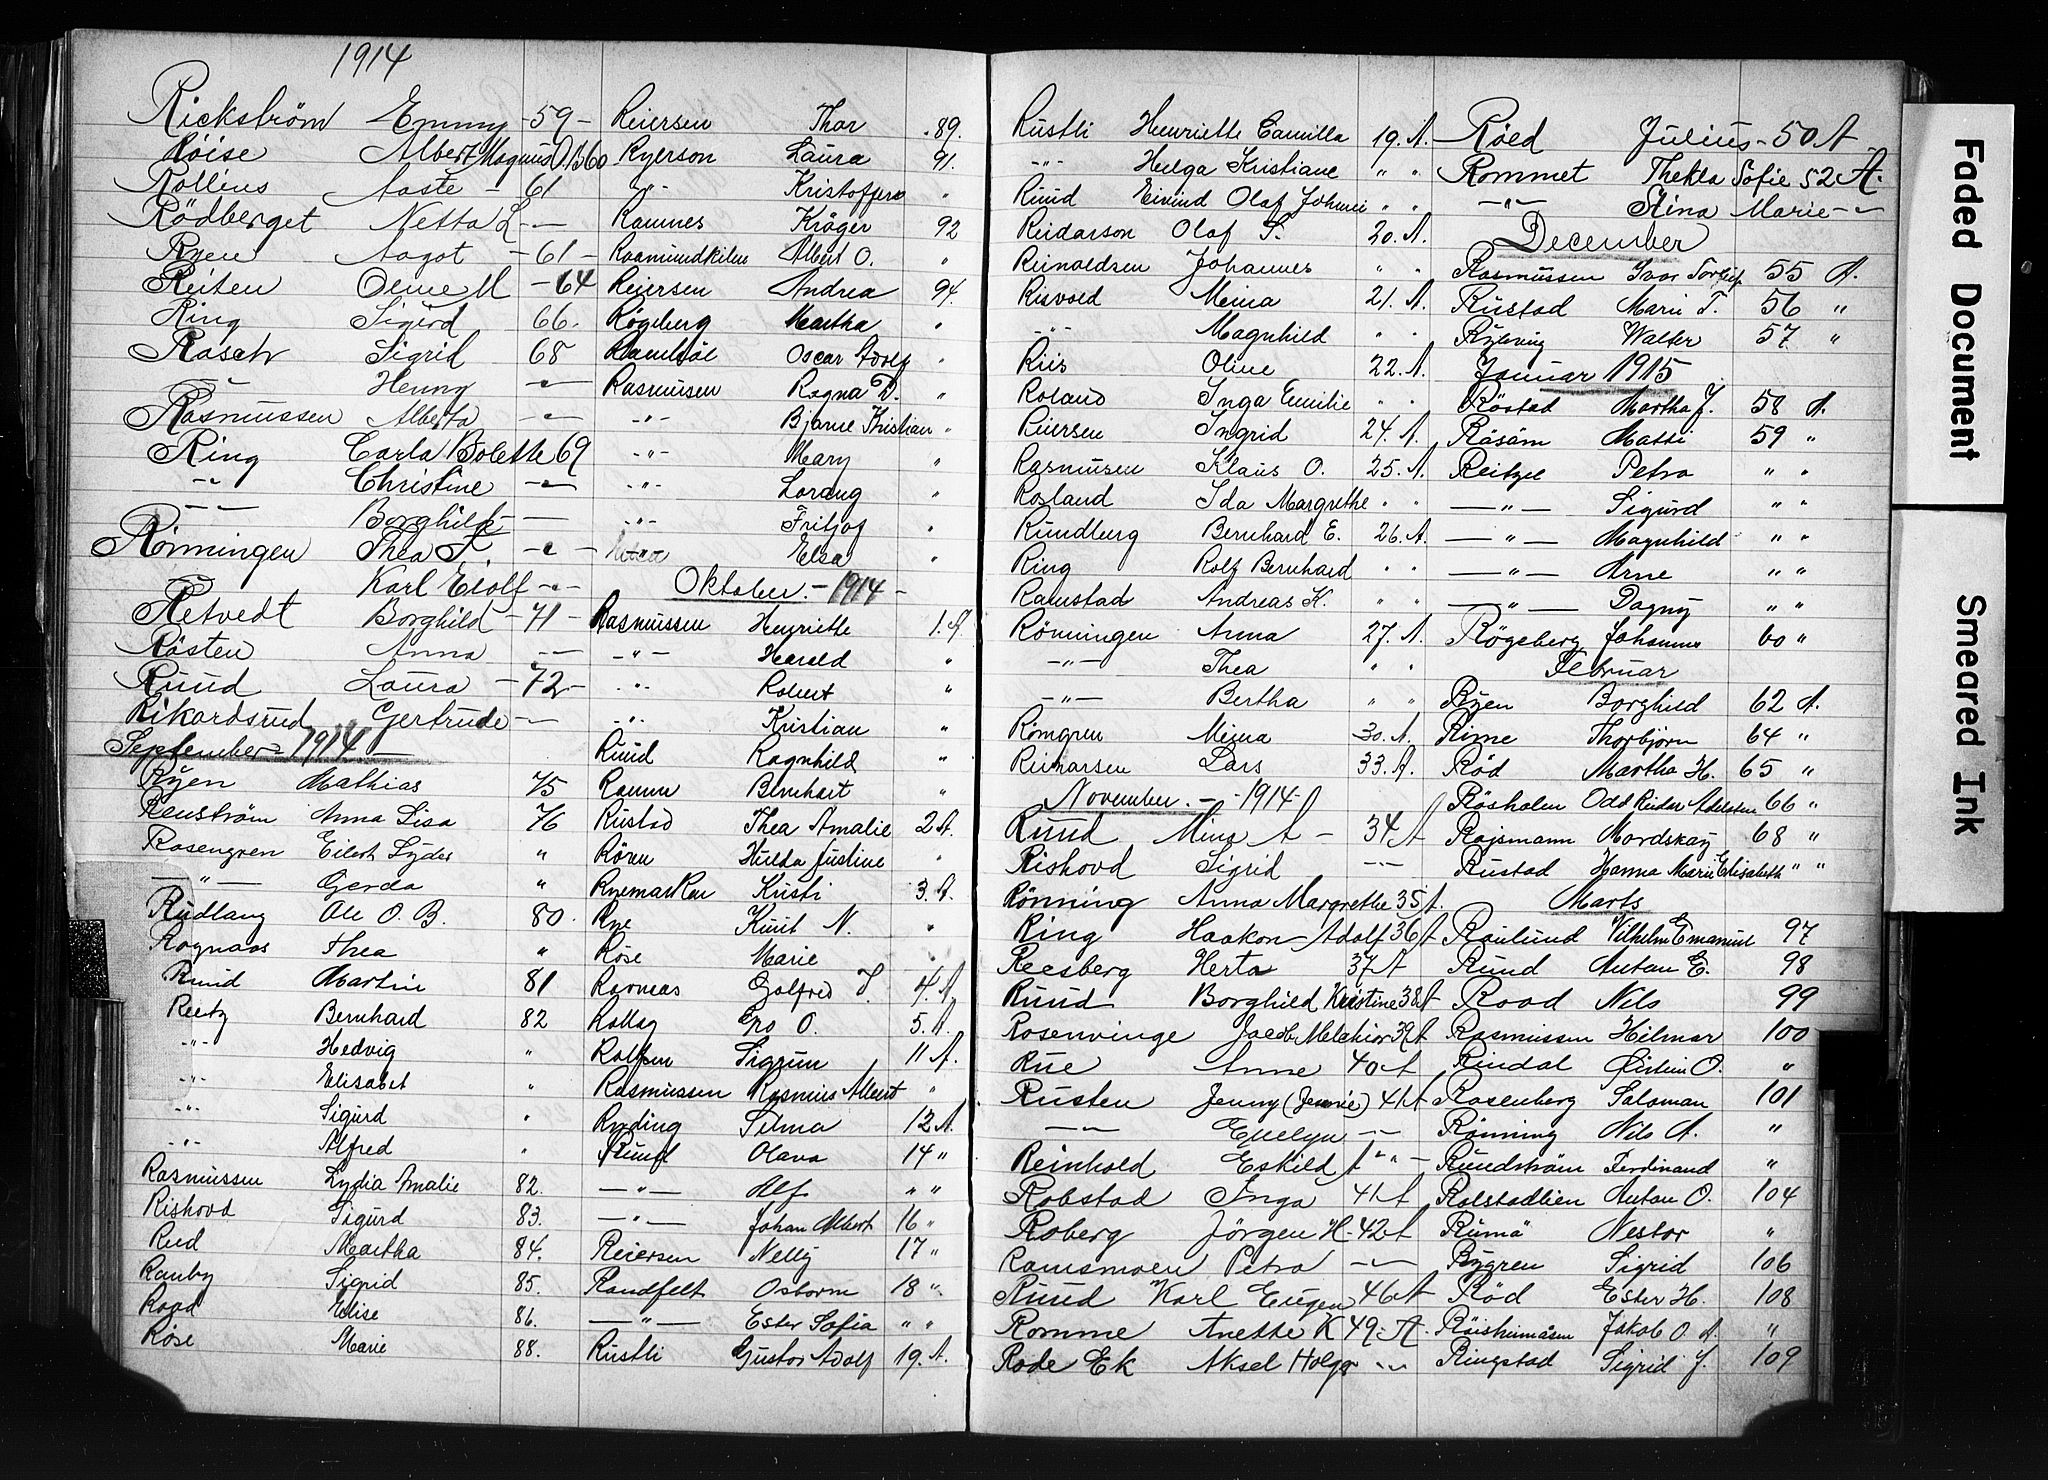 1914
Rickström Emmy - 59 -
Röise Albert Magnus O. B 60
Rollins Aaste - 61
Rödberget Netta L - -
Ryen Aagot - 61 -
Reiten Oline M - 64
Ring Sigurd 66.
Rasch Sigrid 68
" Henny - " -
Rasmussen Alberta - " -
Ring Carla Bolette 69
- " - Christine - " -
- - Borghild - -
Rønningen Thea T. - " -
Karl Eiolf - " -
Retvedt Borghild - 71 -
Rösten Anna - -
Ruud Laura - 72 -
Rikardsrud Gertrude - -
September - 1914
Ryen Mathias 75
Renström Anna Lisa 76
Rosengren Eilert Lyder "
- " - Gerda "
Rudlang Ole O. B. 80.
Rognaas Thea "
Ruud Martin 81
Reetz Bernhard 82
- " - Hedvig "
- " - Elisabet "
- " - Sigurd "
- " - Alfred "
Rasmussen Lydia Amalie 82.
Rishovd Sigurd 83.
Rud Martha 84.
Ranby Sigrid 85.
Road Elise 86.
Røse Marie 88.
Reiersen Thor 89.
Ryerson Laura 91.
- " - Kristoffera "
Ramnes Kröger 92
Raamundkilen Albert O. "
Reiersen Andrea 94
Røgeberg Martha "
Ramsøl Oscar Adolf "
Rasmussen Ragna D. "
- " - Bjarne Kristian "
- " - Mary "
- " - Lorang "
- " - Fritjof "
Elsa "
Oktober - 1914 -
Rasmussen Henriette 1. A.
- " - Harald "
- " - Robert "
- " - Kristian "
Ruud Ragnhild "
Ramm Bernhart "
Rustad Thea Amalie 2 A.
Rören Hulda Justine "
Ryemarken Kristi 3. A.
Rye Knut N. "
Røse Marie "
Ravneas Golfred S. 4. A
Rollag Gro O. 5. A.
Rolfsen Sigrun 11 A.
Rasmussen Rasmus Albert "
Ryding Selma 12 A.
Ruud Olava 14 "
- " - Alf " "
- " - Johan Albert 16 "
Reiersen Nelly 17 "
Randfelt Osborm 18 "
- " - Ester Sofia " "
Rustli Gustav Adolf 19. A.
Rustli Henriette Camilla 19. A.
- " - Helga Kristiane " "
Ruud Eivind Olaf Johnni " "
Reidarson Olaf S. 20. A.
Reinaldsen Johannes " "
Risvold Meina 21. A.
- " - Magnhild " "
Riis Oline 22. A.
Roland Inga Emilie " "
Reiersen Ingrid 24. A.
Rasmusen Klaus O. 25. A.
Rosland Ida Margrethe " "
Rundberg Bernhard E. 26. A.
Ring Rolf Bernhard " "
Ramstad Andreas K. " "
Römingen Anna 27. A.
- " - Thea " "
- " - Bertha " "
Romgren Meina 30. A.
Reinarsen Lars 33. A.
November. - - 1914
Ruud Mina A - 34 A
Rishovd Sigrid - -
Rønning Anna Margrethe 35 A.
Ring Haakon Adolf 36 A
Reesberg Herta 37 A
Ruud Borghild Kristine 38 A
Rosenvinge Jacob Melchior 39 A
Rue Anne 40 A
Rusten Jenny (Jennie) 41 A
- " - Evelyn - " -
Reinhold Eskild A " " -
Robstad Inga 41 A
Roberg Jörgen H. 42 A
Ramsmoen Petra - " -
Ruud Karl Eugen 46 A
Romme Anette K 49. A.
Rode Ek Aksel Holger - " -
Röed Julius - 50 A
Rommet Thekla Sofie 52 A.
- " - Stina Marie - " -
December
Rasmussen Ivar Torleif 55 A.
Rustad Marie T. 56 "
Ryterving Walter 57 "
Januar 1915
Röstad Martha J. 58 A.
Räsäm Matti 59 "
Reitzel Petra " "
- " - Sigurd " "
- " - Magnhild " "
- " - Arne " "
- " - Dagny " "
Røgeberg Johannes 60 "
Februar
Ryen Borghild 62 A.
Rime Thorbjørn 64 "
Rød Martha H. 65 "
Røsholen Odd Reidar Adelsten 66 "
Rojsmann Mordskay 68 "
Rustad Hanna Marie Elisabeth " "
Marts
Roilund Vilhelm Emanuel 97
Ruud Anton E. 98
Road Nils 99
Rasmussen Hilmar 100
Rindal Eistein O. "
Rosenberg Salomon 101
Rønning Nils A. "
Rundström Ferdinand "
Rolstadlien Anton O. 104
Rumä Nestor "
Rygren Sigrid 106
Rød Ester H. 108
Røisheimåsen Jakob O. A. "
Ringstad Sigrid J. 109
Faded Document
Smeared Ink